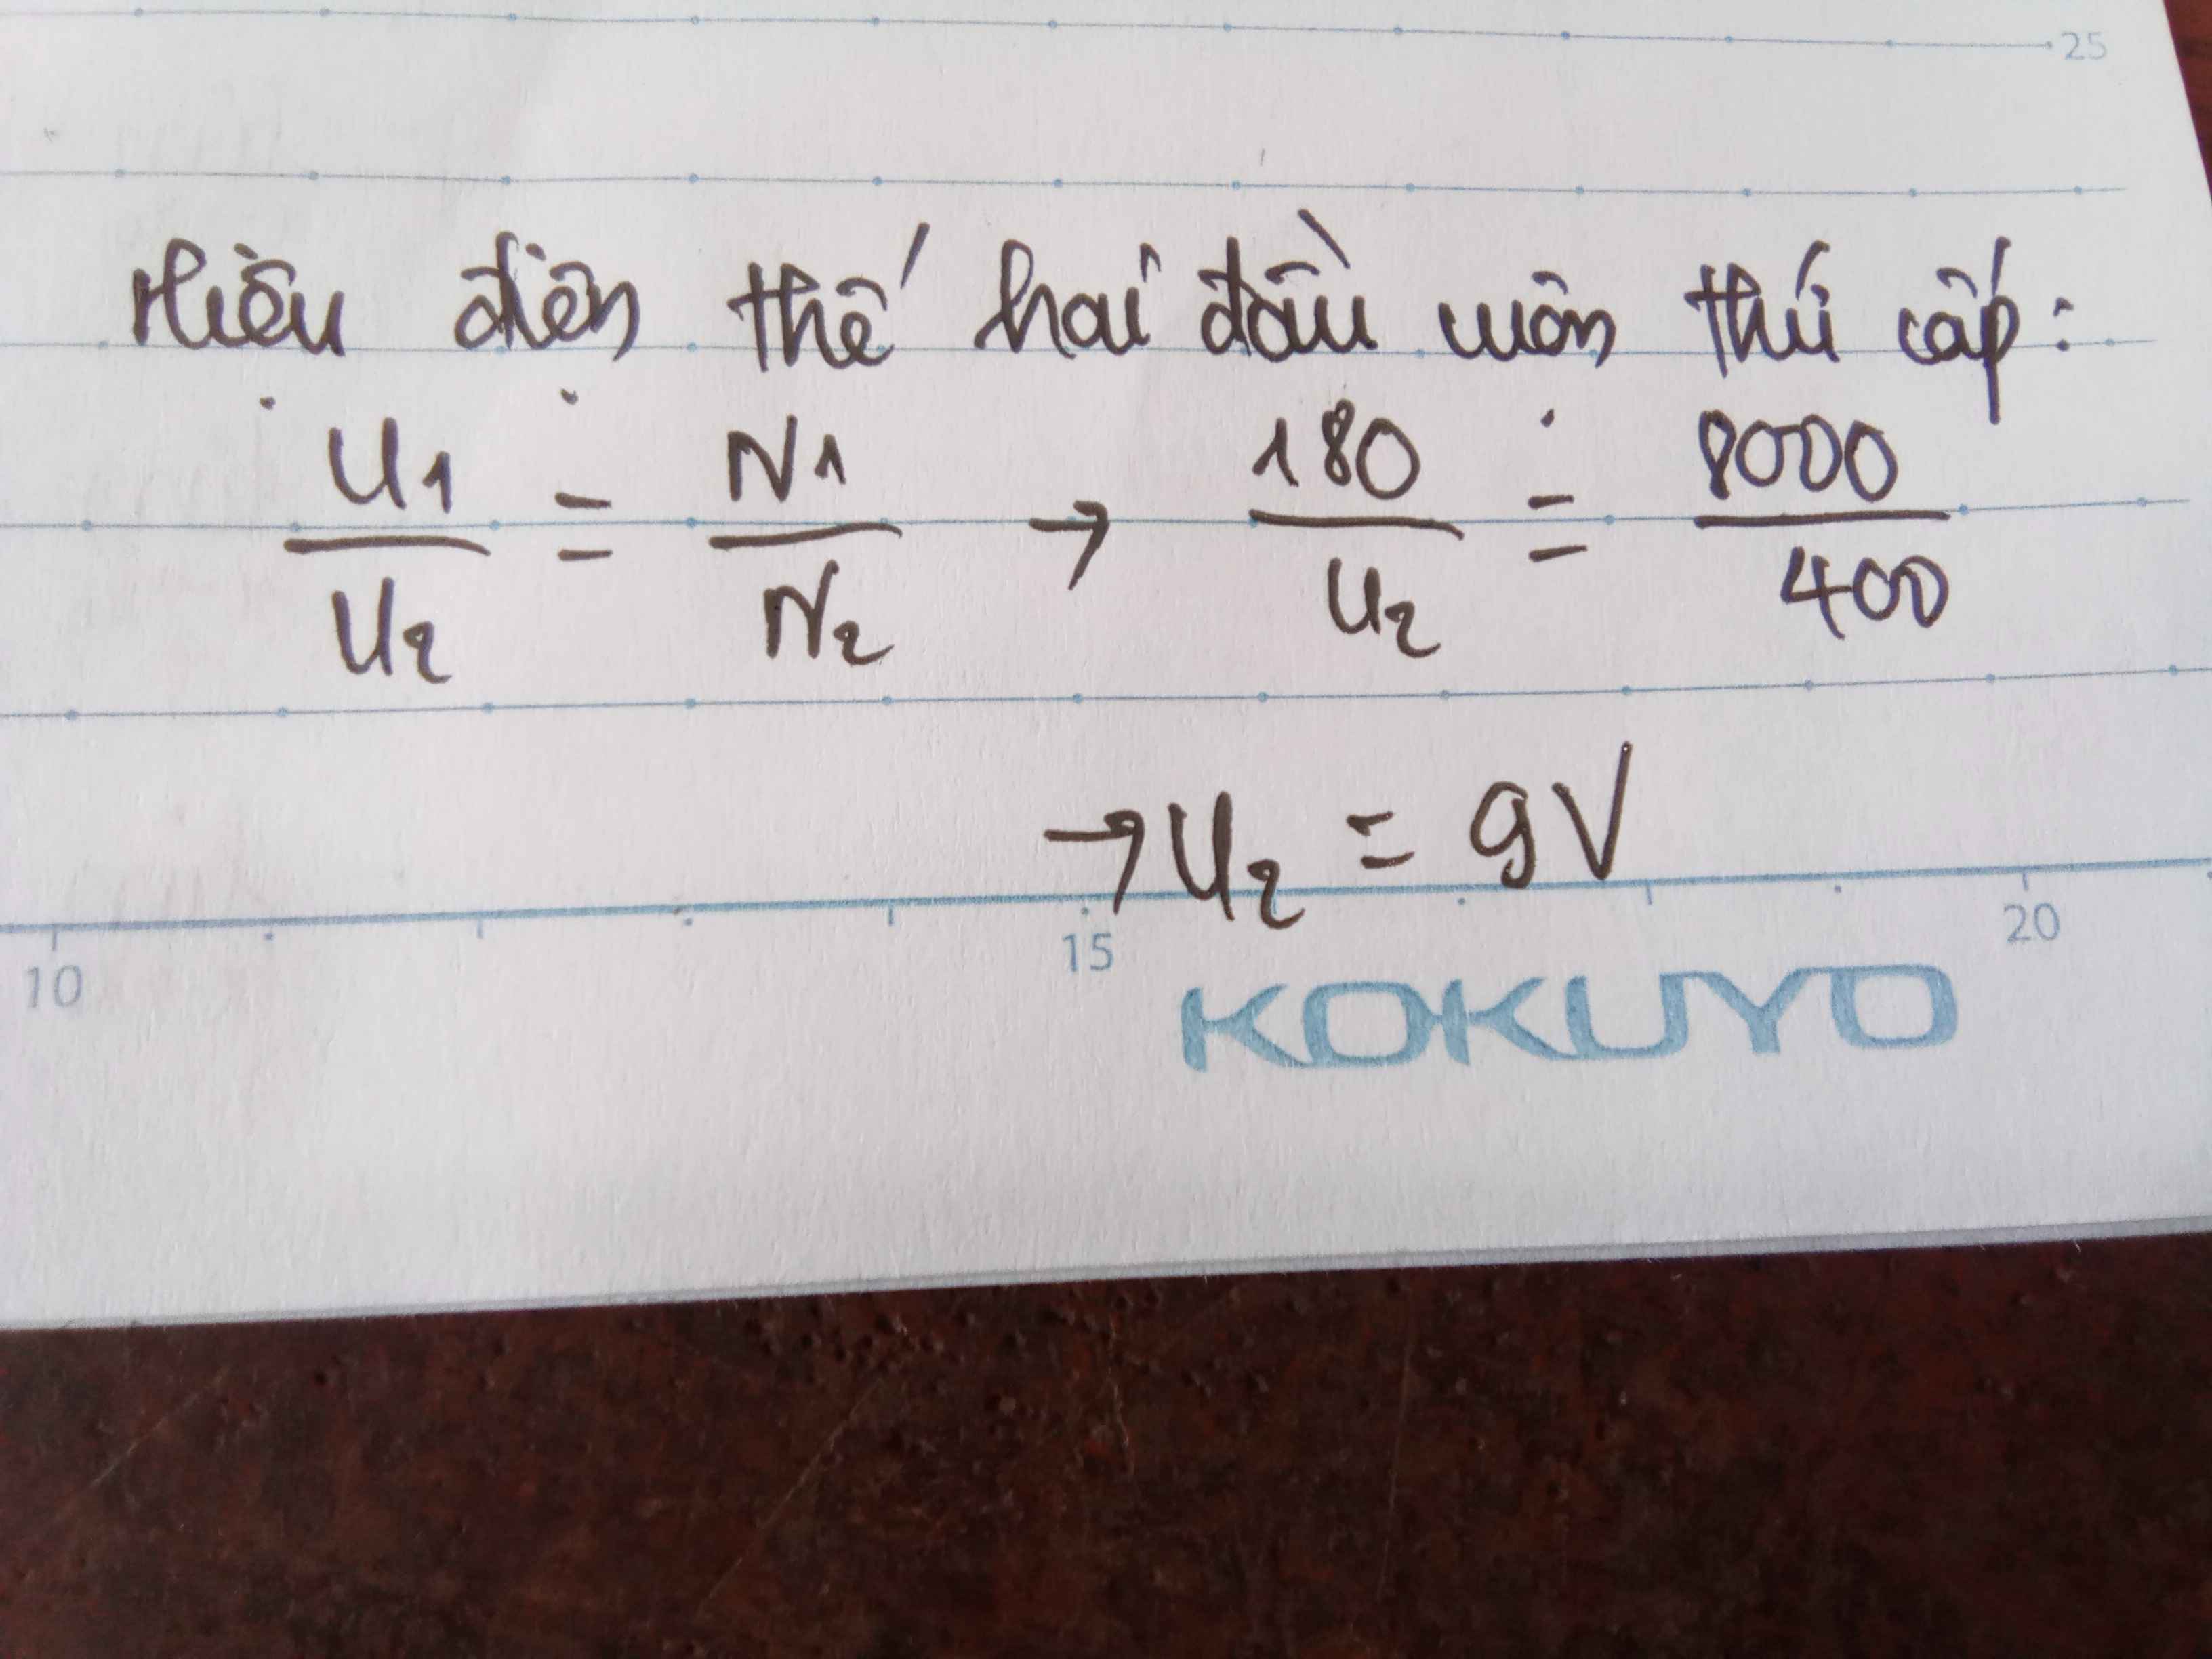 25
Hiệu điện thế hai đầu cuộn thứ cấp:
U1/U2 = N1/N2 → 180/U2 = 8000/400
→ U2 = 9V
10 15 20
KOKUYO